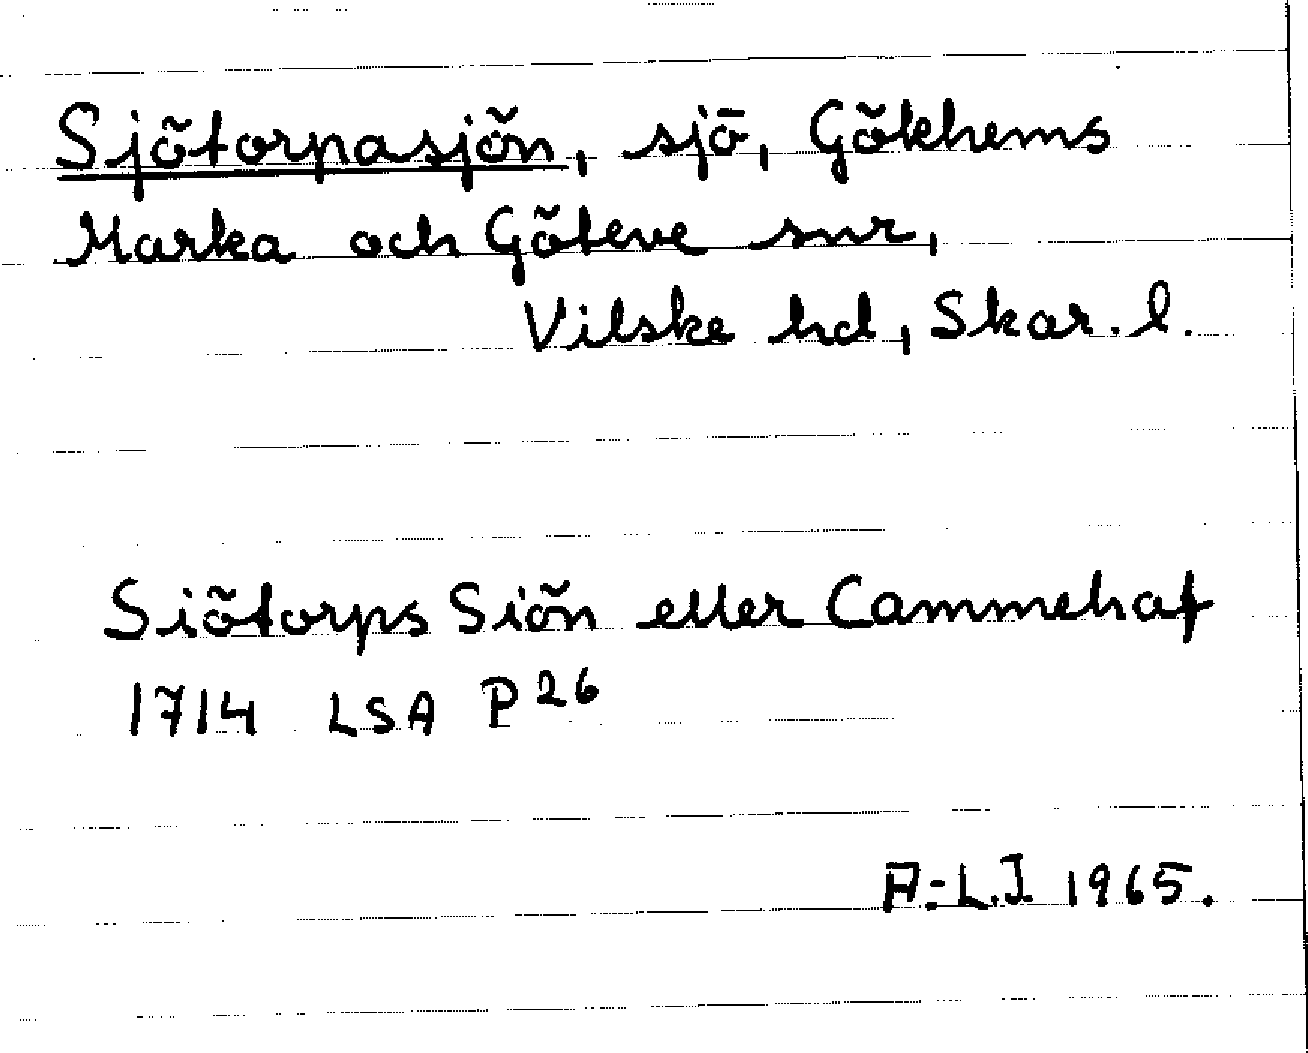 Sjötorpasjön, sjö, Gökhems
Marka och Göteve snr,
Vilske hd, Skar. l.
Siötorps Siön eller Cammehaf
1714 LSA P 26
A-L.J. 1965.